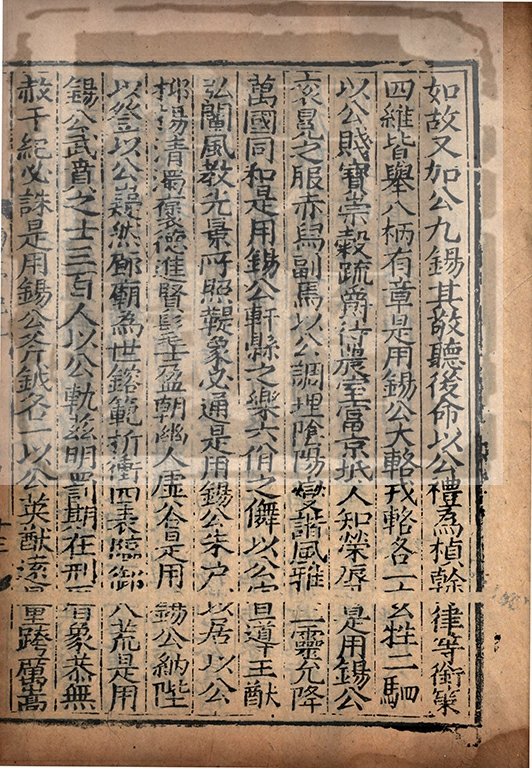 如故又加公九錫其敬聽後命以公禮為楨幹律等銜策
四維皆舉八柄有章是用錫公大輅戎輅各一玄牡二駟
以公賤寶崇穀疏爵待農室富京坻人知榮辱是用錫公
衮冕之服赤舄副焉以公調理陰陽燮諧風雅三靈允降
萬國同和是用錫公軒縣之樂六佾之儛以公宣導王猷
弘闡風教光景所照鞮象必通是用錫公朱户以居以公
抑揚清濁褒德進賢髦士盈朝幽人虛谷是用錫公納陛
以登以公嶷然廊廟為世鎔範折衝四表臨御八荒是用
錫公武賁之士三百人以公軌兹明罰期在刑象恭無
赦干紀必誅是用錫公斧鉞各一以公英猷遠量跨厲嵩